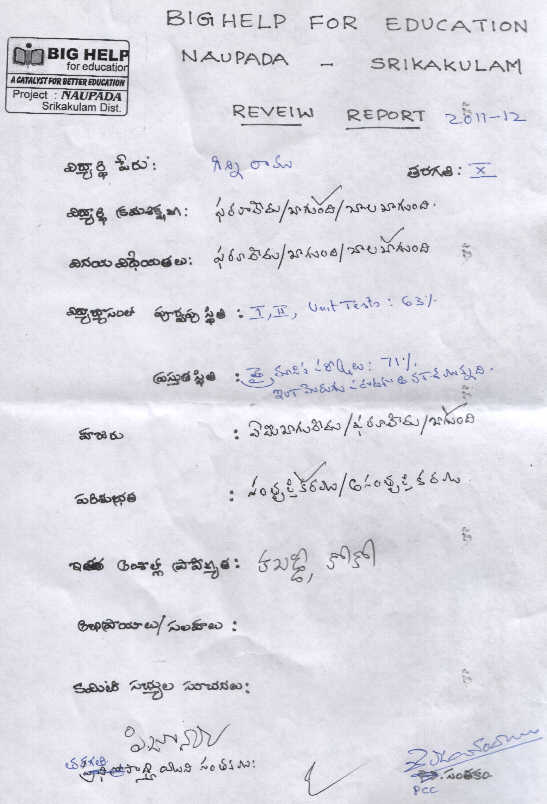 BIG HELP FOR EDUCATION
BIG HELP
for education
A CATALYST FOR BETTER EDUCATION
Project : NAUPADA
Srikakulam Dist.
NAUPADA - SRIKAKULAM
REVEIW REPORT 2011-12
విద్యార్థి పేరు: గిన్ని రాము తరగతి: X
విద్యార్థి క్రమశిక్షణ: ఫరవాలేదు/బాగుంది/చాలబాగుంది.
వినయ విధేయతలు: ఫరవాలేదు/బాగుంది/చాలబాగుంది
పూర్వపు స్థితి : I, II, Unit Tests : 63%
ప్రస్తుతస్థితి : త్రైమాసిక పరీక్షలు: 71%.
హాజరు : ఏమిబాగులేదు/ఫరవాలేదు/బాగుంది
పరిశుభ్రత : సంతృప్తికరము/అసంతృప్తికరము
ఇతర అంశాల్లో ప్రావీణ్యత: కబడ్డీ, కోకో
అభిప్రాయాలు/సలహాలు :
కమిటీ సభ్యుల సూచనలు:
తరగతి సంతకము:
సంతకం
PCC